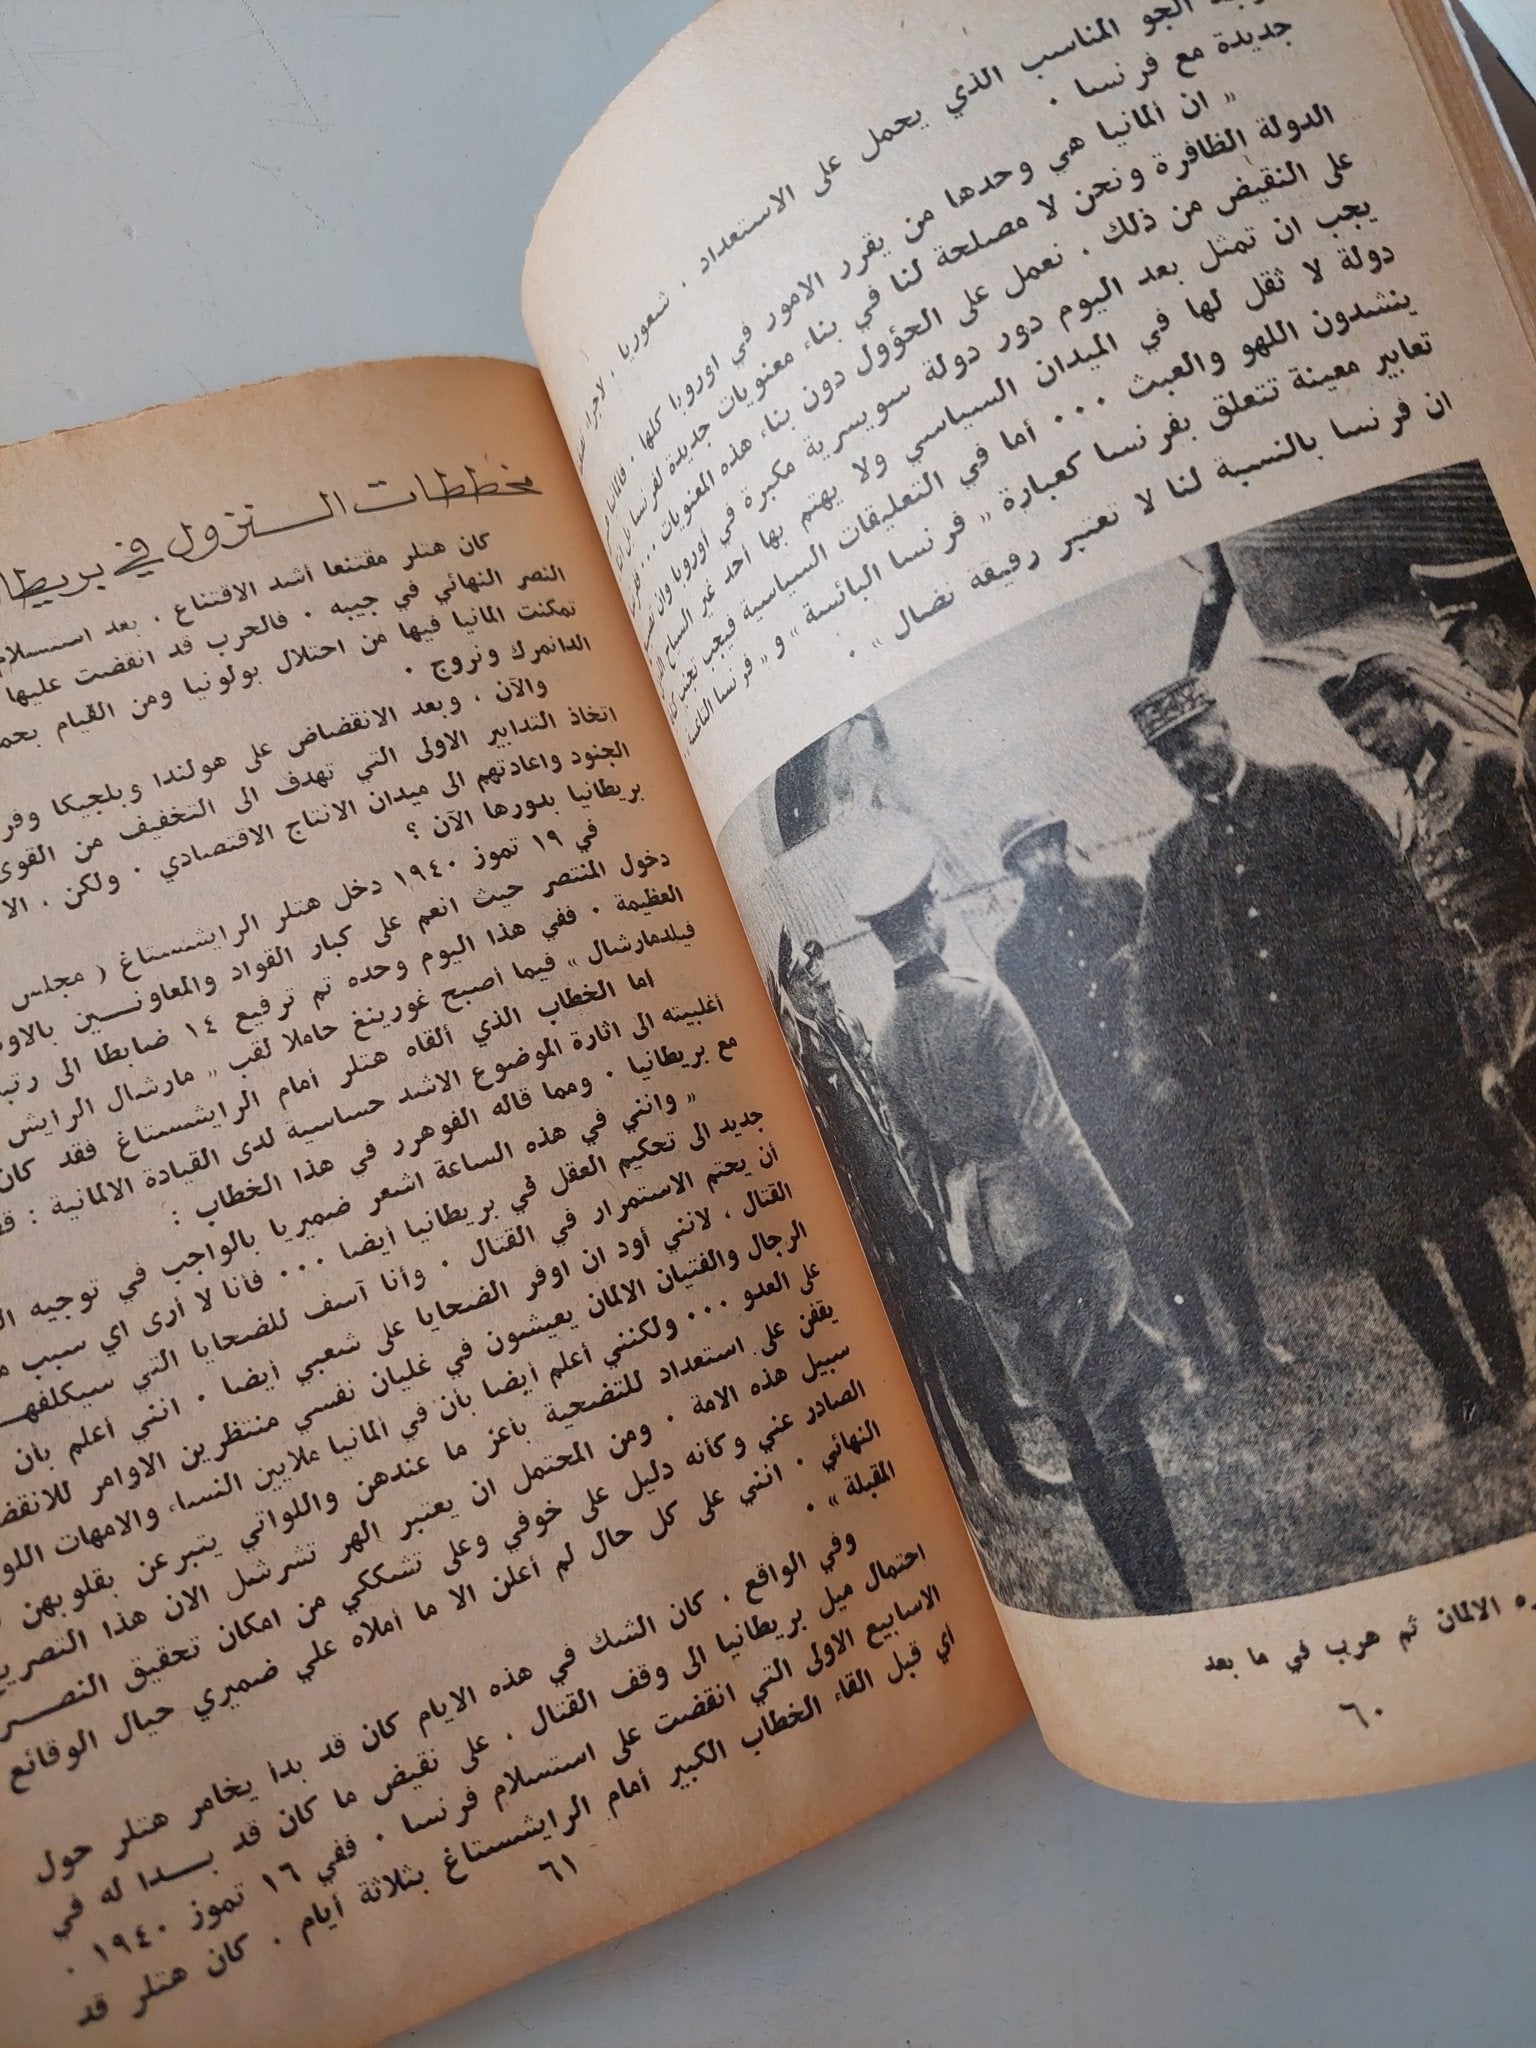 الجو المناسب الذي يحمل على الاستعداد ، شعوريا ، لاجراء
جديدة مع فرنسا .
« ان ألمانيا هي وحدها من يقرر الامور في اوروبا كلها . فالمانيا
الدولة الظافرة ونحن لا مصلحة لنا في بناء معنويات جديدة لفرنسا بل اننا
على النقيض من ذلك ، نعمل على الحؤول دون بناء هذه المعنويات ...
يجب ان تمثل بعد اليوم دور دولة سويسرية مكبرة في أوروبا وان
دولة لا ثقل لها في الميدان السياسي ولا يهتم بها أحد غير السياح
ينشدون اللهو والعبث ... أما في التعليقات السياسية فيجب تجنب
تعابير معينة تتعلق بفرنسا كعبارة « فرنسا البائسة » و « فرنسا التاعسة
ان فرنسا بالنسبة لنا لا تعتبر رفيقة نضال » .
الالمان ثم هرب في ما بعد
٦٠
مخططات النزول في
كان هتلر مقتنعا أشد الاقتناع ، بعد استسلام
النصر النهائي في جيبه . فالحرب قد انقضت عليها
تمكنت المانيا فيها من احتلال بولونيا ومن القيام
الدانمرك ونروج .
والآن ، وبعد الانقضاض على هولندا وبلجيكا
اتخاذ التدابير الاولى التي تهدف الى التخفيف من القوى
الجنود واعادتهم الى ميدان الانتاج الاقتصادي . ولكن ،
بريطانيا بدورها الآن ؟
في ١٩ تموز ١٩٤٠ دخل هتلر الرايشستاغ ( مجلس
دخول المنتصر حيث انعم على كبار القواد والمعاونين
العظيمة . ففي هذا اليوم وحده تم ترفيع ١٤ ضابطا الى
فيلدمارشال » فيما أصبح غورينغ حاملا لقب « مارشال الرايش
أما الخطاب الذي ألقاه هتلر أمام الرايشستاغ فقد كان
أغلبيته الى اثارة الموضوع الاشد حساسية لدى القيادة الالمانية :
مع بريطانيا . ومما قاله الفوهرر في هذا الخطاب :
« وانني في هذه الساعة اشعر ضميريا بالواجب في توجيه
جديد الى تحكيم العقل في بريطانيا أيضا ... فأنا لا أرى اي سبب
أن يحتم الاستمرار في القتال . وأنا آسف للضحايا التي سيكلفها
القتال ، لانني أود ان اوفر الضحايا على شعبي أيضا . انني أعلم بأن
الرجال والفتيان الالمان يعيشون في غليان نفسي منتظرين الاوامر
على العدو ... ولكنني أعلم أيضا بأن في ألمانيا ملايين النساء والامهات
يقفن على استعداد للتضحية بأعز ما عندهن واللواتي يتبرعن بقلوبهن
سبيل هذه الامة . ومن المحتمل ان يعتبر الهر تشرشل الان هذا
الصادر عني وكأنه دليل على خوفي وعلى تشككي من امكان تحقيق النصر
النهائي . انني على كل حال لم أعلن الا ما أملاه علي ضميري حيال الوقائع
المقبلة » .
وفي الواقع ، كان الشك في هذه الايام كان قد بدأ يخامر هتلر حول
احتمال ميل بريطانيا الى وقف القتال ، على نقيض ما كان قد بدا له في
الاسابيع الاولى التي انقضت على استسلام فرنسا . ففي ١٦ تموز ١٩٤٠ ،
اي قبل القاء الخطاب الكبير أمام الرايشستاغ بثلاثة أيام . كان هتلر قد
٦١